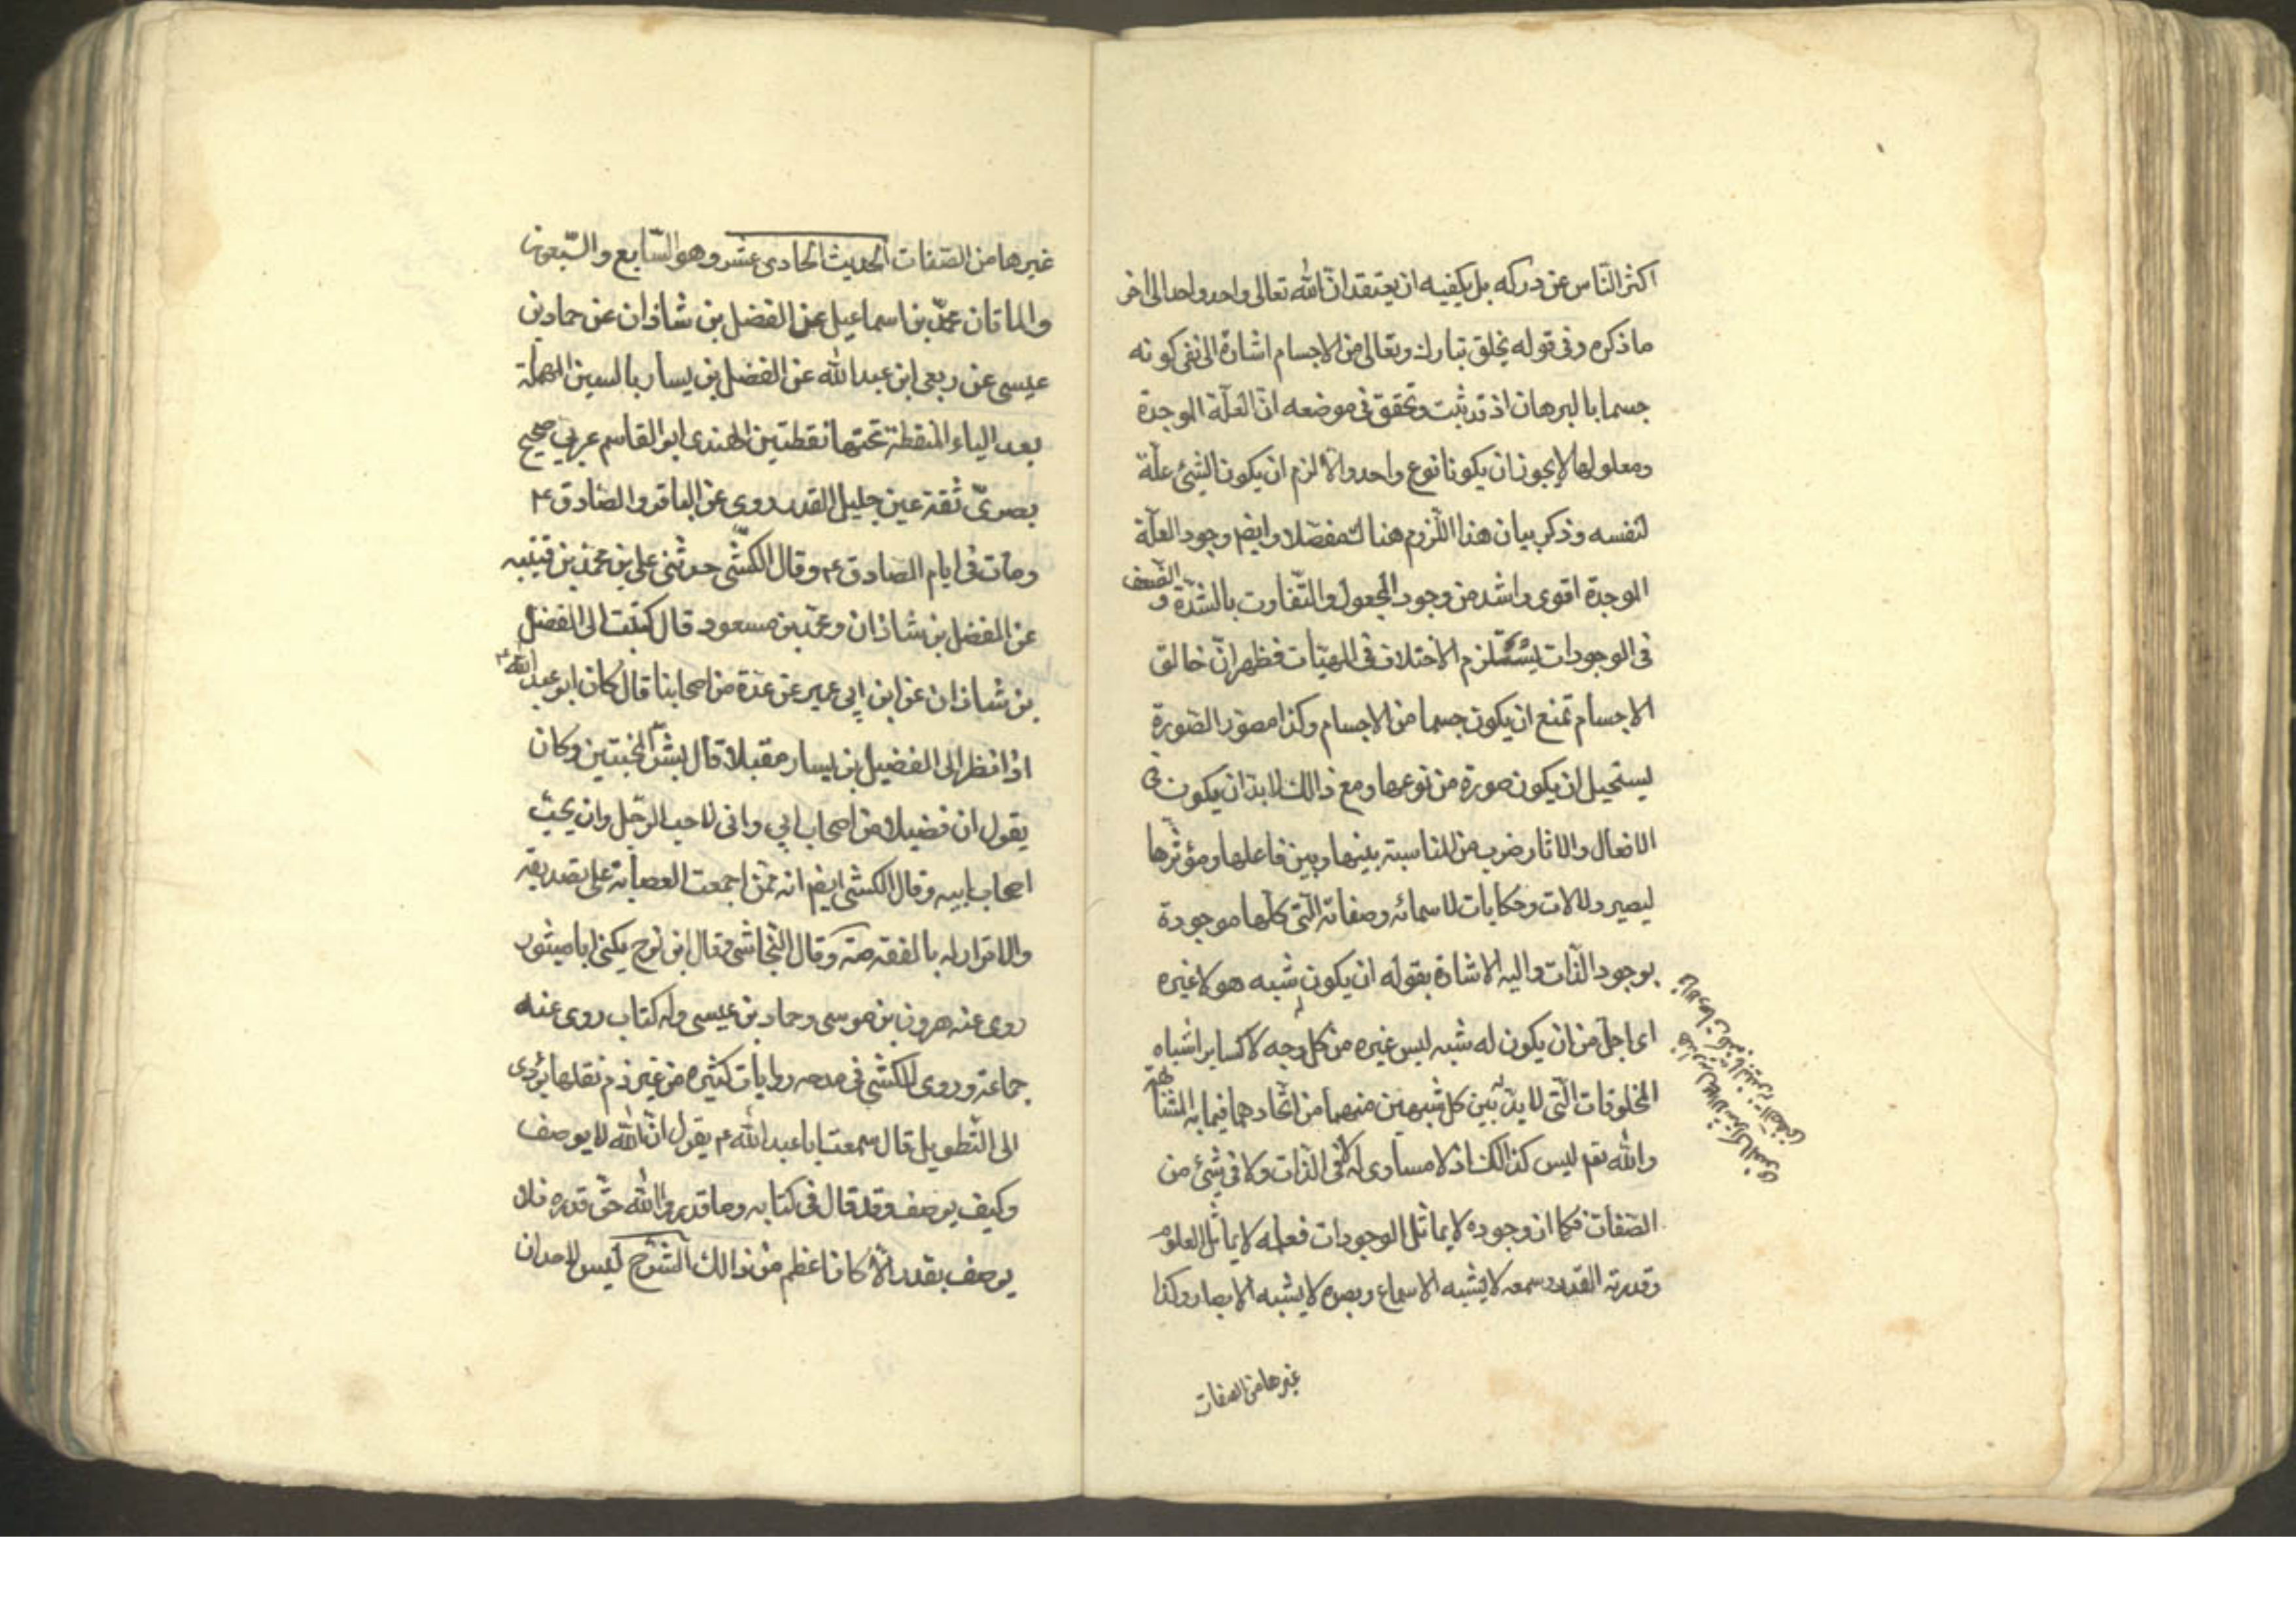 اكثر النّاس عن دركه بل يكفيه ان يعتقد انّ الله تعالى واحد واحد الى اخر
ما ذكره وفى قوله يخلق تبارك وتعالى من الاجسام اشارة الى نفى كونه
جسما بالبرهان اذ قد ثبت وتحقق فى موضعه انّ العلّة الموجدة
ومعلولها لا يجوز ان يكونا نوع واحد والّا لزم ان يكون الشئ علّة
لنفسه وذكر بيان هذا اللّزوم هناك مفصّلا وايضم وجود العلّة
الموجدة اقوى واشد من وجود المجعول والتّفاوت بالشدّة و الضعف
فى الوجودات يستلزم الاختلاف فى المهيّات فظهر انّ خالق
الاجسام تمنع ان يكون جسما من الاجسام وكذا مصوّر الصّورة
يستحيل ان يكون صورة من نوعها ومع ذالك لا بدّ ان يكون فى
الافعال والاثار ضرب من المناسبة بينها وبين فاعلها ومؤثّرها
ليصير دلالات وحكايات لاسمائه وصفاته الّتى كلّها موجودة
بوجود الذّات واليه الاشارة بقوله ان يكون شبه هو لا غيره
اى اجلّ من ان يكون له شبه ليس غيره من كل وجه لا كساير اشباه
المخلوقات الّتى لا بدّ بين كل شبهين منهما من اتّحادهما فيما به المشابهة
والله تعم ليس كذالك اذ لا مساوى له لا فى الذّات ولا فى شئ من
الصّفات فكما ان وجوده لا يماثل الوجودات فعله لا يماثل العلوم
وقدرته القدر وسمعه لا يشبه الاسماع وبصره لا يشبه الابصار وكذا
غيرها من الصفات
غيرها من الصّفات الحديث الحادى عشر وهو السّابع والسّبعون
والماتان محمّد بن اسماعيل عن الفضل بن شاذان عن حماد بن
عيسى عن ربعى ابن عبد الله عن الفضل بن يسار بالسين المهملة
بعد الياء المنقطة تحتها نقطتين الهندى ابو القاسم عربى صحيح
بصرىّ ثقة عين جليل القدر روى عن الباقر والصّادق ع
ومات فى ايام الصادق ع وقال الكشّى حدثنى على بن محمّد بن قتيبه
عن الفضل بن شاذان ومحمّد بن مسعود قال كتبت الى الفضل
بن شاذان عن ابن ابى عمير عن عدة من اصحابنا قال كان ابو عبد الله ع
اذا نظر الى الفضيل بن يسار مقبلا قال بشّر المخبتين وكان
يقول ان فضيلا من اصحاب ابى وانى لاحب الرّجل وان يحبّ
اصحاب ابيه وقال الكشى ايضم انه ممّن اجمعت العصابة على تصديقه
والاقرار له بالفقه صه وقال النّجاشى وقال ابن نوح يكنى ابا ميثور
روى عنه هرون بن موسى وحماد بن عيسى وله كتاب روى عنه
جماعة وروى الكشّى فى مدحه روايات كثيره من غير ذم نقلها يؤدى
الى التّطويل قال سمعت ابا عبد الله ع يقول انّ الله لا يوصف
وكيف يوصف وقد قال فى كتابه وما قدروا الله حقّ قدره فلا
يوصف بقدر الّا كان اعظم من ذالك الشّرح ليس لاحد ان